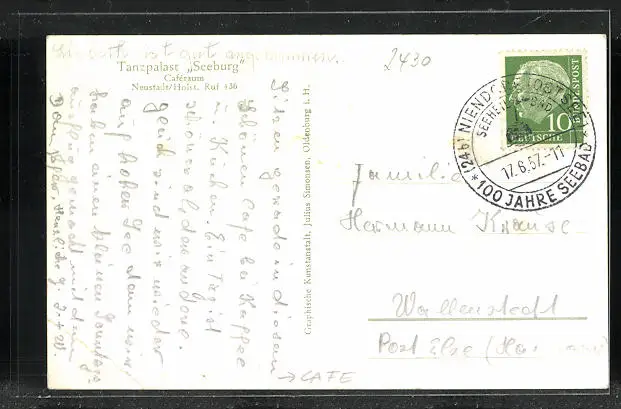 ist gut angekommen.
2430
Tanzpalast „Seeburg"
Caféraum
Neustadt/Holst. Ruf 336
Sitzen gerade in diesem
schönen Cafe bei Kaffee
u. Kuchen. Ein Tag ist
schöner als der andere.
gleich sind wir wieder
auf hoher See denn wir
haben einen kleinen
ausflug gemacht mit dem
Graphische Kunstanstalt, Julius Simonsen, Oldenburg i. H.
DEUTSCHE BUNDESPOST
10
(24b) NIENDORF OSTSEE
17.6.57.-11
* 100 JAHRE SEEBAD *
Familie
Hermann Krause
Wallenstedt
Post Elze (Han
→ CAFE